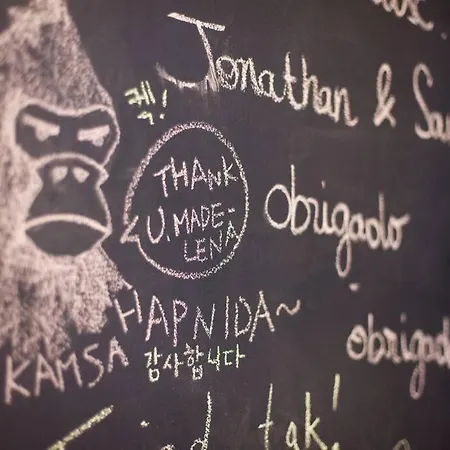 Jonathan & Sa
THANK
U. MADE-
LENA
Obrigado
HAPNIDA~
KAMSA
감사합니다
obrigad
tak!